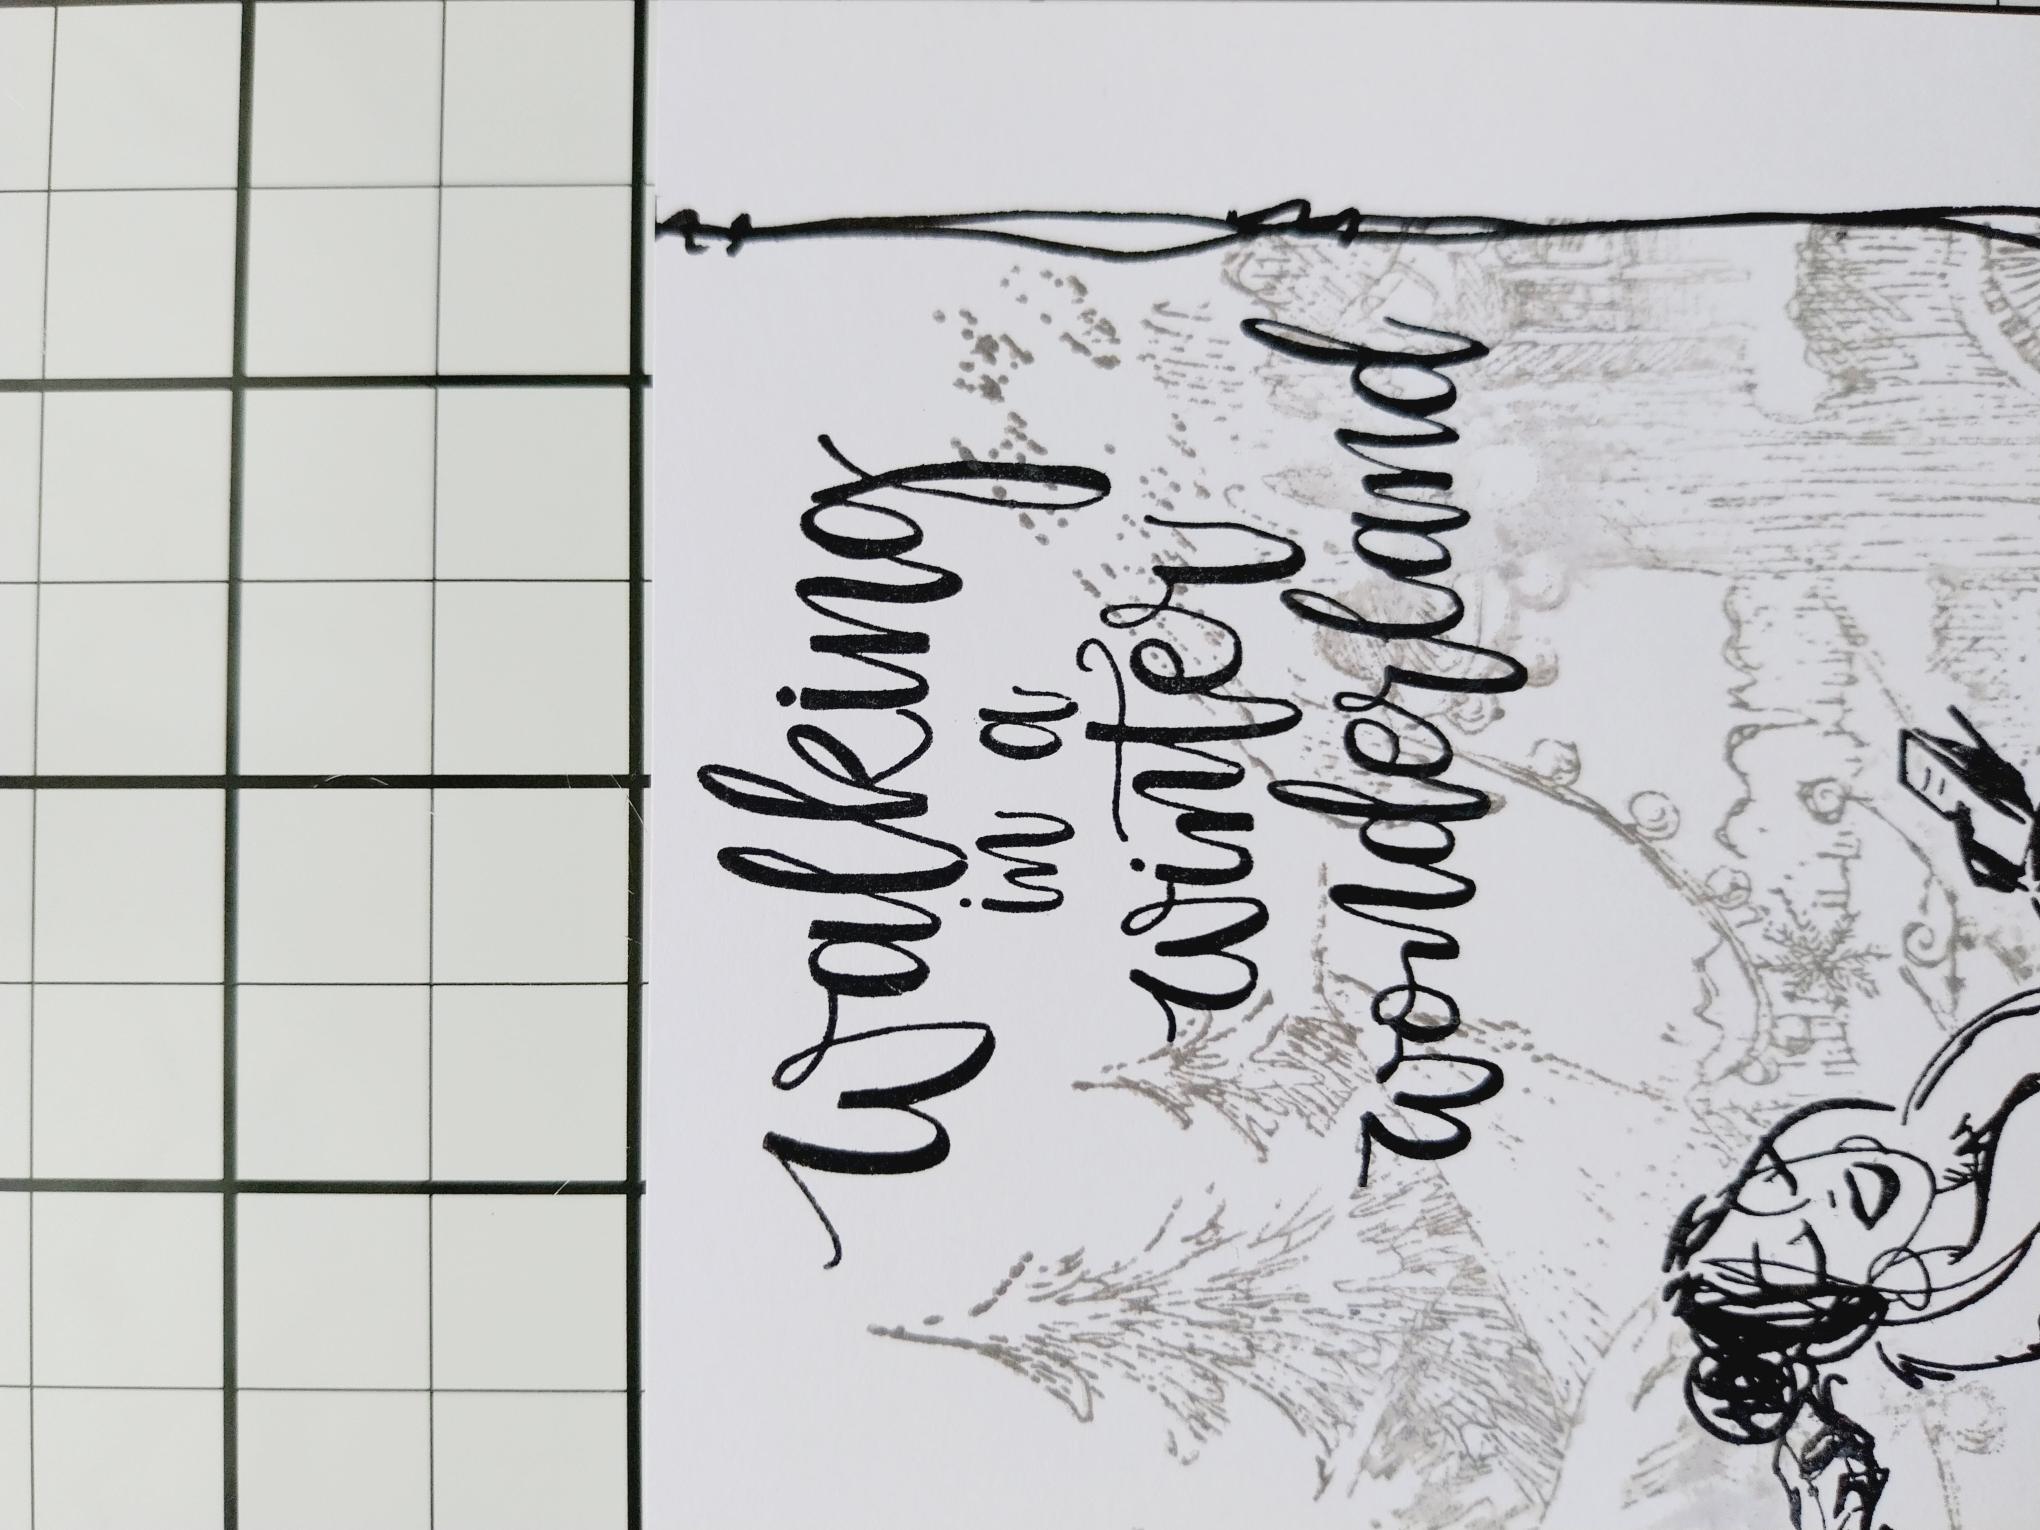 walking
in a
winter
wonderland